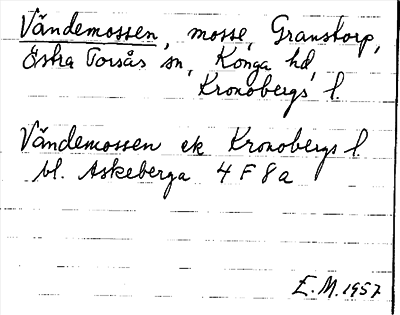 Vändemossen, mosse, Granstorp,
Östra Torsås sn, Konga hd,
Kronobergs l.
Vändemossen ek Kronobergs l.
bl. Askeberga 4 F 8 a
E.M. 1957